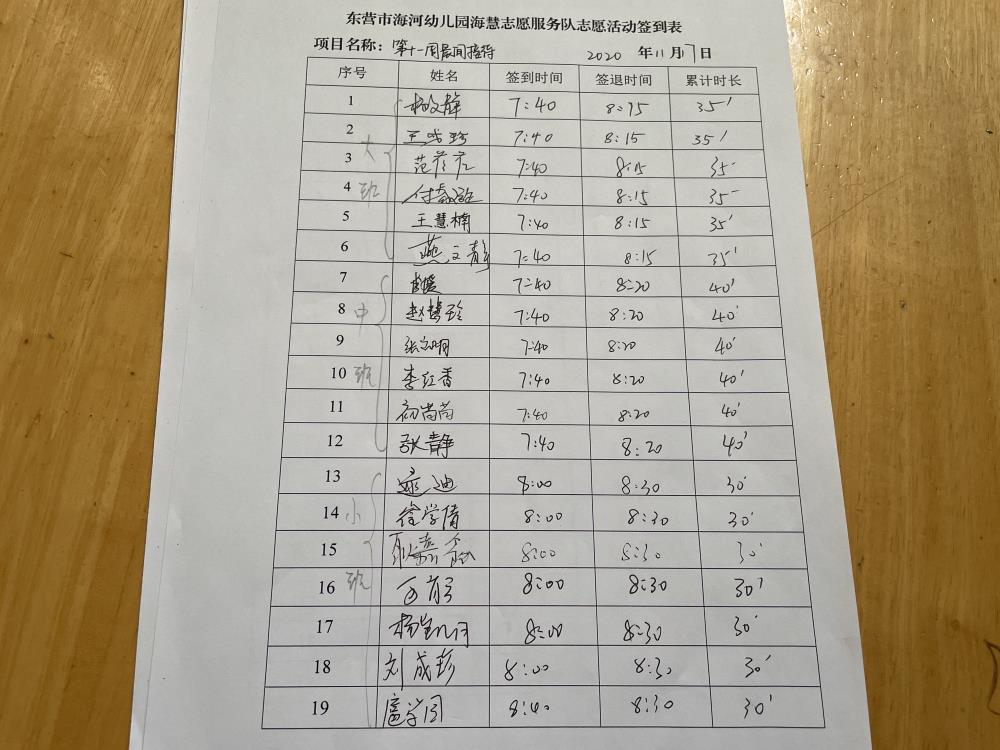 东营市海河幼儿园海慧志愿服务队志愿活动签到表
项目名称：第十一周晨间接待 2020 年11月17日
序号 姓名 签到时间 签退时间 累计时长
大班
1 杨文静 7:40 8:15 35'
2 王成珍 7:40 8:15 35'
3 范 7:40 8:15 35'
4 付 7:40 8:15 35'
5 王慧楠 7:40 8:15 35'
6 燕文静 7:40 8:15 35'
中班
7 7:40 8:20 40'
8 赵慧玲 7:40 8:20 40'
9 张 明 7:40 8:20 40'
10 李红香 7:40 8:20 40'
11 尚苗 7:40 8:20 40'
12 张静 7:40 8:20 40'
小班
13 迪 8:00 8:30 30'
14 徐学倩 8:00 8:30 30'
15 8:00 8:30 30'
16 8:00 8:30 30'
17 杨 8:00 8:30 30'
18 刘成彭 8:00 8:30 30'
19 8:40 8:30 30'